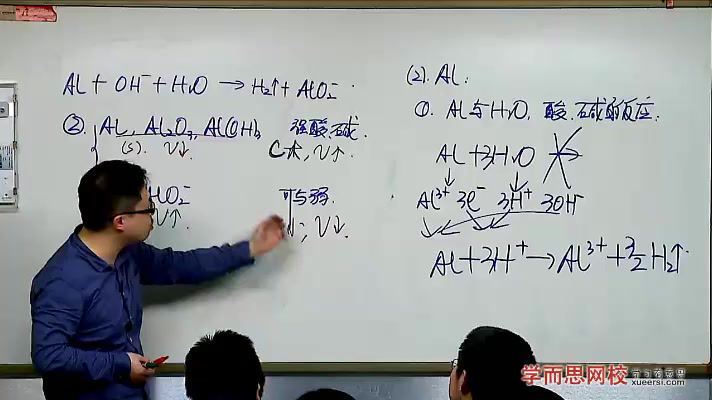 Al + OH⁻ + H₂O → H₂↑ + AlO₂⁻.
② Al, Al₂O₃, Al(OH)₃ 强酸、碱.
(S). V↓. C大, V↑.
AlO₂⁻ 可与弱.
V↑. ↓; V↓.
(2). Al:
①. Al与H₂O, 酸、碱的反应.
Al + 3H₂O →
Al³⁺ 3e⁻ 3H⁺ 3OH⁻
Al + 3H⁺ → Al³⁺ + 3/2 H₂↑
学而思网校
xueersi.com